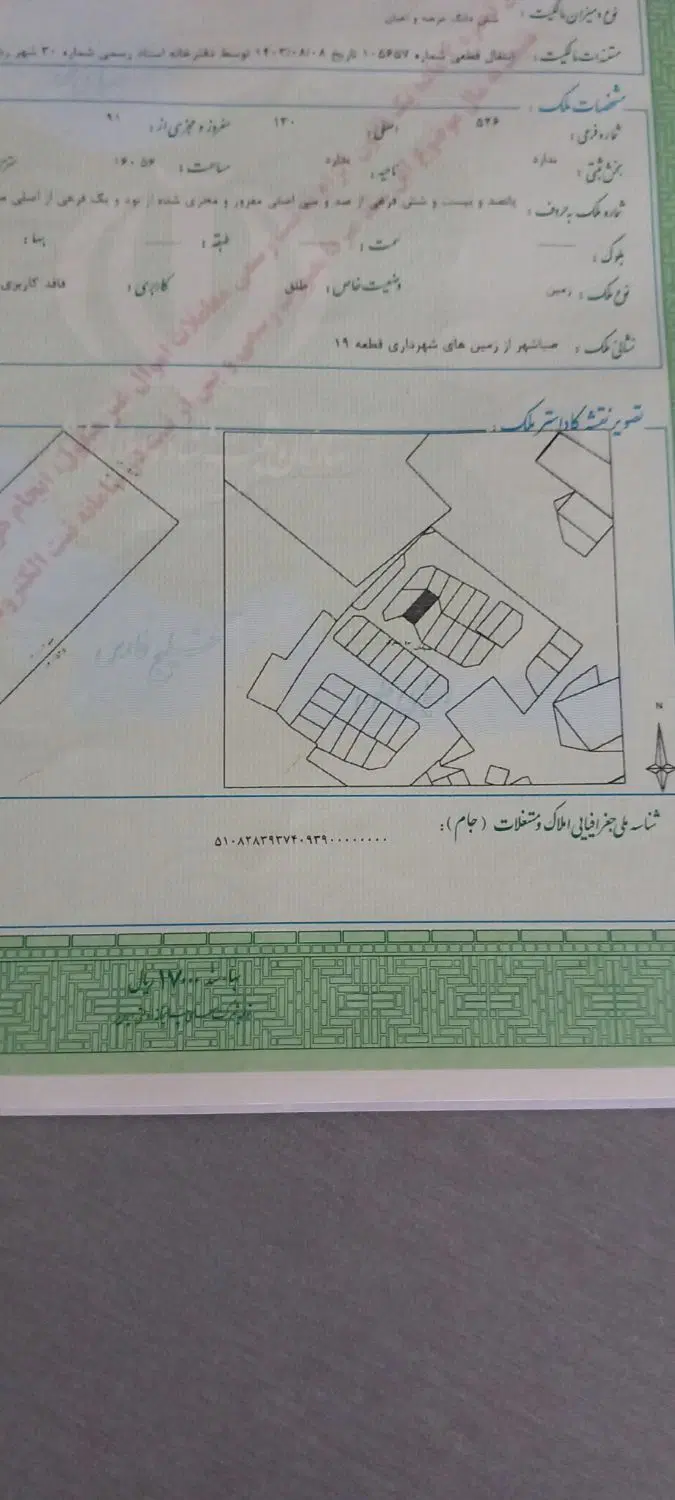 نوع و میزان مالکیت : شش دانگ عرصه و اعیان
مستندات مالکیت : انتقال قطعی شماره ۱۰۵۶۵۷ تاریخ ۱۴۰۳/۰۸/۰۸ توسط دفترخانه اسناد رسمی شماره ۳۰ شهر
مشخصات ملک :
شماره فرعی : ۵۲۶ اصلی : ۱۳۰ مفروز و مجزی از : ۹۱
بخش ثبتی : ندارد ناحیه : ندارد مساحت : ۱۶۰.۵۶ متر
شماره ملک به حروف : پانصد و بیست و شش فرعی از صد و سی اصلی مفروز و مجزی شده از نود و یک فرعی از اصلی
بلوک : سمت : طبقه : بها :
نوع ملک : زمین وضعیت خاص : طلق کاربری : فاقد کاربری
نشانی ملک : صباشهر از زمین های شهرداری قطعه ۱۹
تصویر نقشه کاداستر ملک :
N
شناسه ملی جغرافیایی املاک و مستغلات (جام) :
۵۱۰۸۲۸۳۹۳۷۴۰۹۳۹۰۰۰۰۰۰۰۰
بها سند ۱۷۰۰۰ ریال